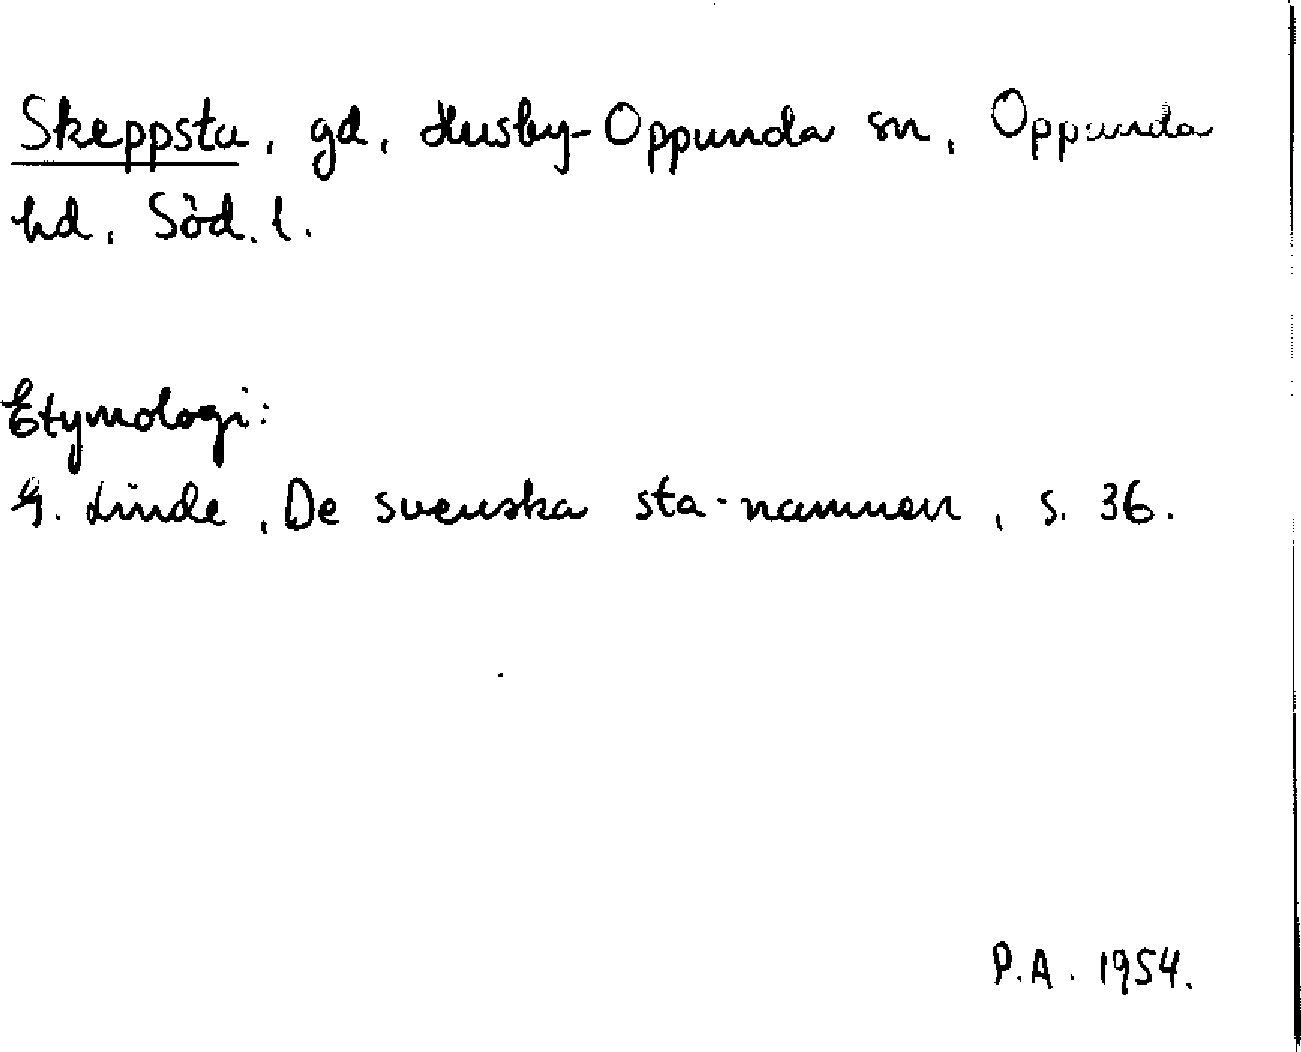 Skeppsta, gd, Husby-Oppunda sn, Oppunda
hd, Söd. l.
Etymologi:
G. Linde, De svenska sta-namnen, s. 36.
P.A. 1954.